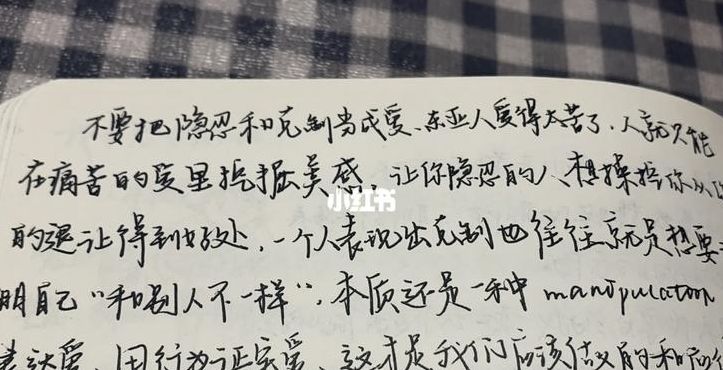 不要把隐忍和克制当成爱、东亚人爱得太苦了、人就只能
在痛苦的爱里挖掘美感、让你隐忍的人、想操控你从你
小红书
的退让得到好处、一个人表现出克制也往往就是想要
明自己“和别人不一样”、本质还是一种 manipulation
表达爱、用行为证实爱、这才是我们应该